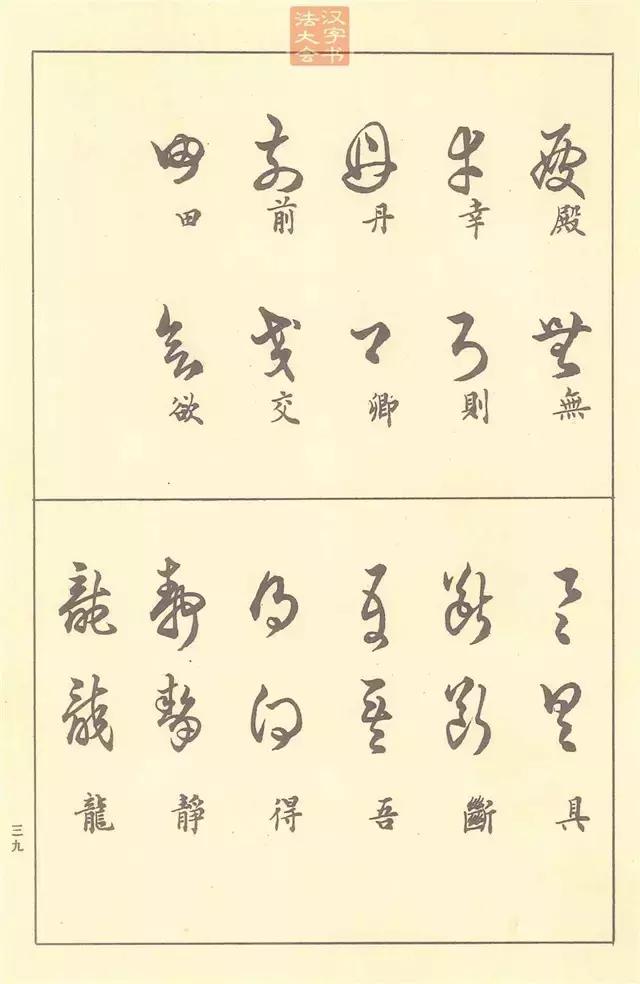 汉字书法大会
殿 無
幸 則
丹 卿
前 交
田 欲
具
斷
吾
得
靜
龍
三九